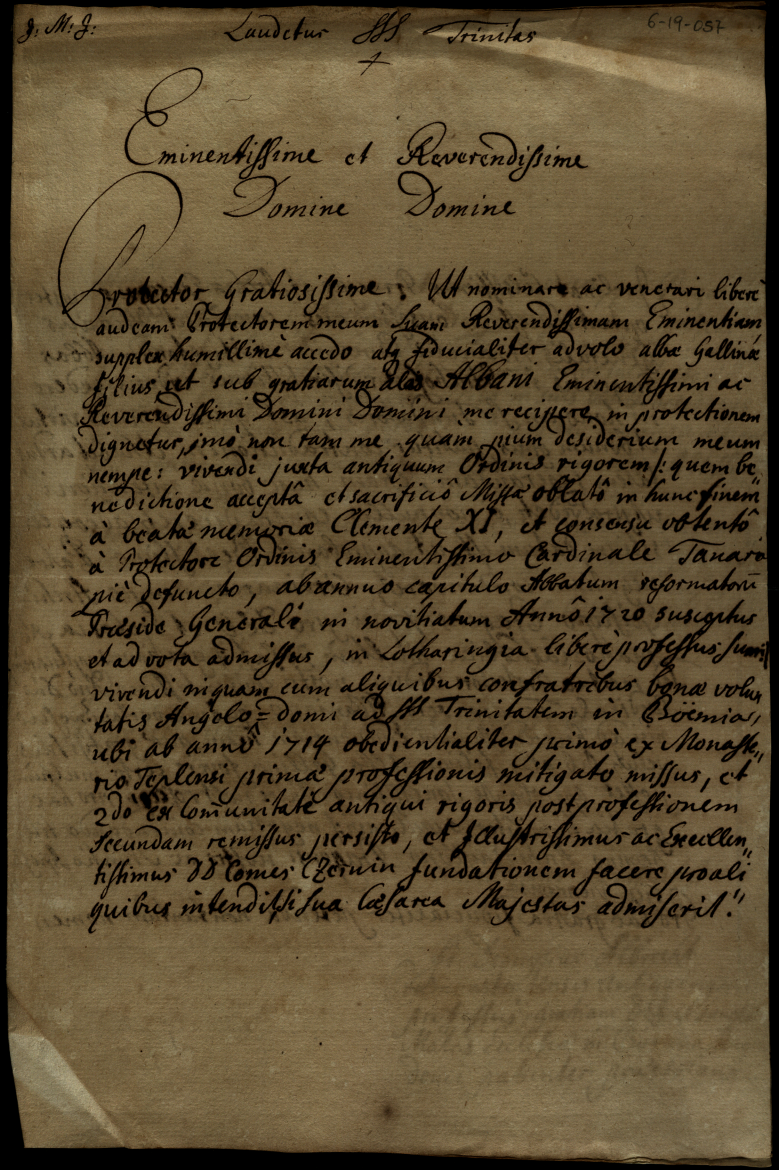 J: M: J: Laudetur SSS Trinitas 6-19-057
Eminentissime et Reverendissime
Domine Domine
Protector Gratiosissime: Ut nominare ac venerari liberè
audeam Protectorem meum Suam Reverendissimam Eminentiam
supplex humillimè accedo atq fiducialiter advolo albæ Gallinæ
filius, ut sub gratiarum alas Albani Eminentissimi ac
Reverendissimi Domini Domini me recipere in protectionem
dignetur, imò non tam me quàm pium desiderium meum
nempe: vivendi juxta antiquum Ordinis rigorem /: quem be„
nedictione acceptâ et sacrificiô Missæ oblatô in hunc finem
à beatæ memoriæ Clemente XI, et consensu obtentô
à Protectore Ordinis Eminentissimo Cardinale Tanara
piè defuncto, ab annuo capitulo Abbatum reformatorū
Præside Generali in novitiatum Annô 1720 susceptus
et ad vota admissus, in Lotharingia liberè professus sum :/
vivendi inquam cum aliquibus confratribus bonæ volun
tatis Angelo=domi ad SSS Trinitatem in Böemia,
ubi ab annô 1714 obedientialiter primò ex Monaste„
rio Teplensi primæ professionis mitigato missus, et
2dò ex Comunitate antiqui rigoris post professionem
secundam remissus persisto, et Illustrissimus ac Excellen„
tissimus DD Comes Czernin fundationem facere pro ali
quibus intendit, si sua Cæsarea Majestas admiserit.